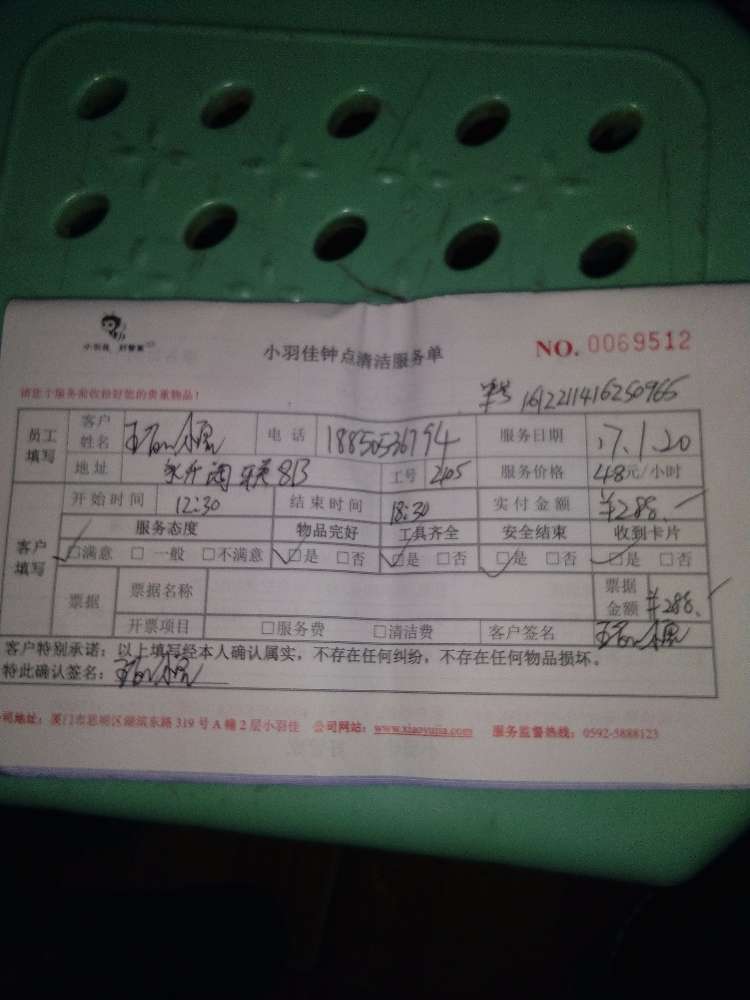 小羽佳 好管家
小羽佳钟点清洁服务单
NO. 0069512
请您于服务前收拾好您的贵重物品！
单号 1612211416250966
员工填写 客户姓名 电话 18850536794 服务日期 17.1.20
地址 813 工号 2405 服务价格 48元/小时
客户填写 开始时间 12:30 结束时间 18:30 实付金额 ￥288.
服务态度 物品完好 工具齐全 安全结束 收到卡片
□满意 □一般 □不满意 □是 □否 □是 □否 □是 □否 □是 □否
票据 票据名称 票据金额 ￥288.
开票项目 □服务费 □清洁费 客户签名
客户特别承诺：以上填写经本人确认属实，不存在任何纠纷，不存在任何物品损坏。
特此确认签名：
公司地址：厦门市思明区湖滨东路 319 号 A 幢 2 层小羽佳 公司网站：www.xiaoyujia.com 服务监督热线：0592-5888123